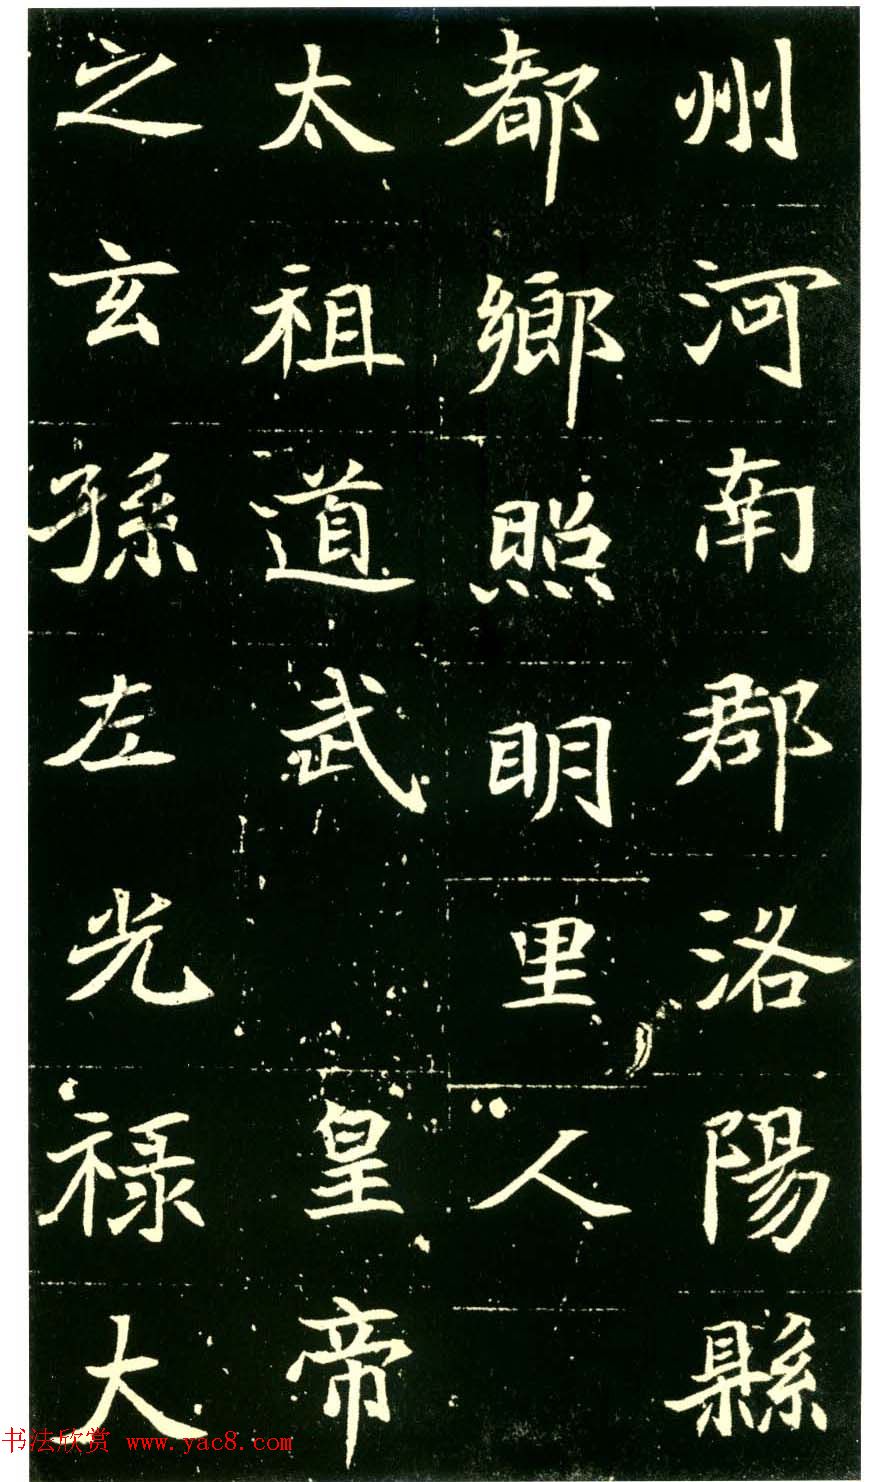 州河南郡洛陽縣
都鄉照明里人
太祖道武皇帝
之玄孫左光禄大
书法欣赏 www.yac8.com